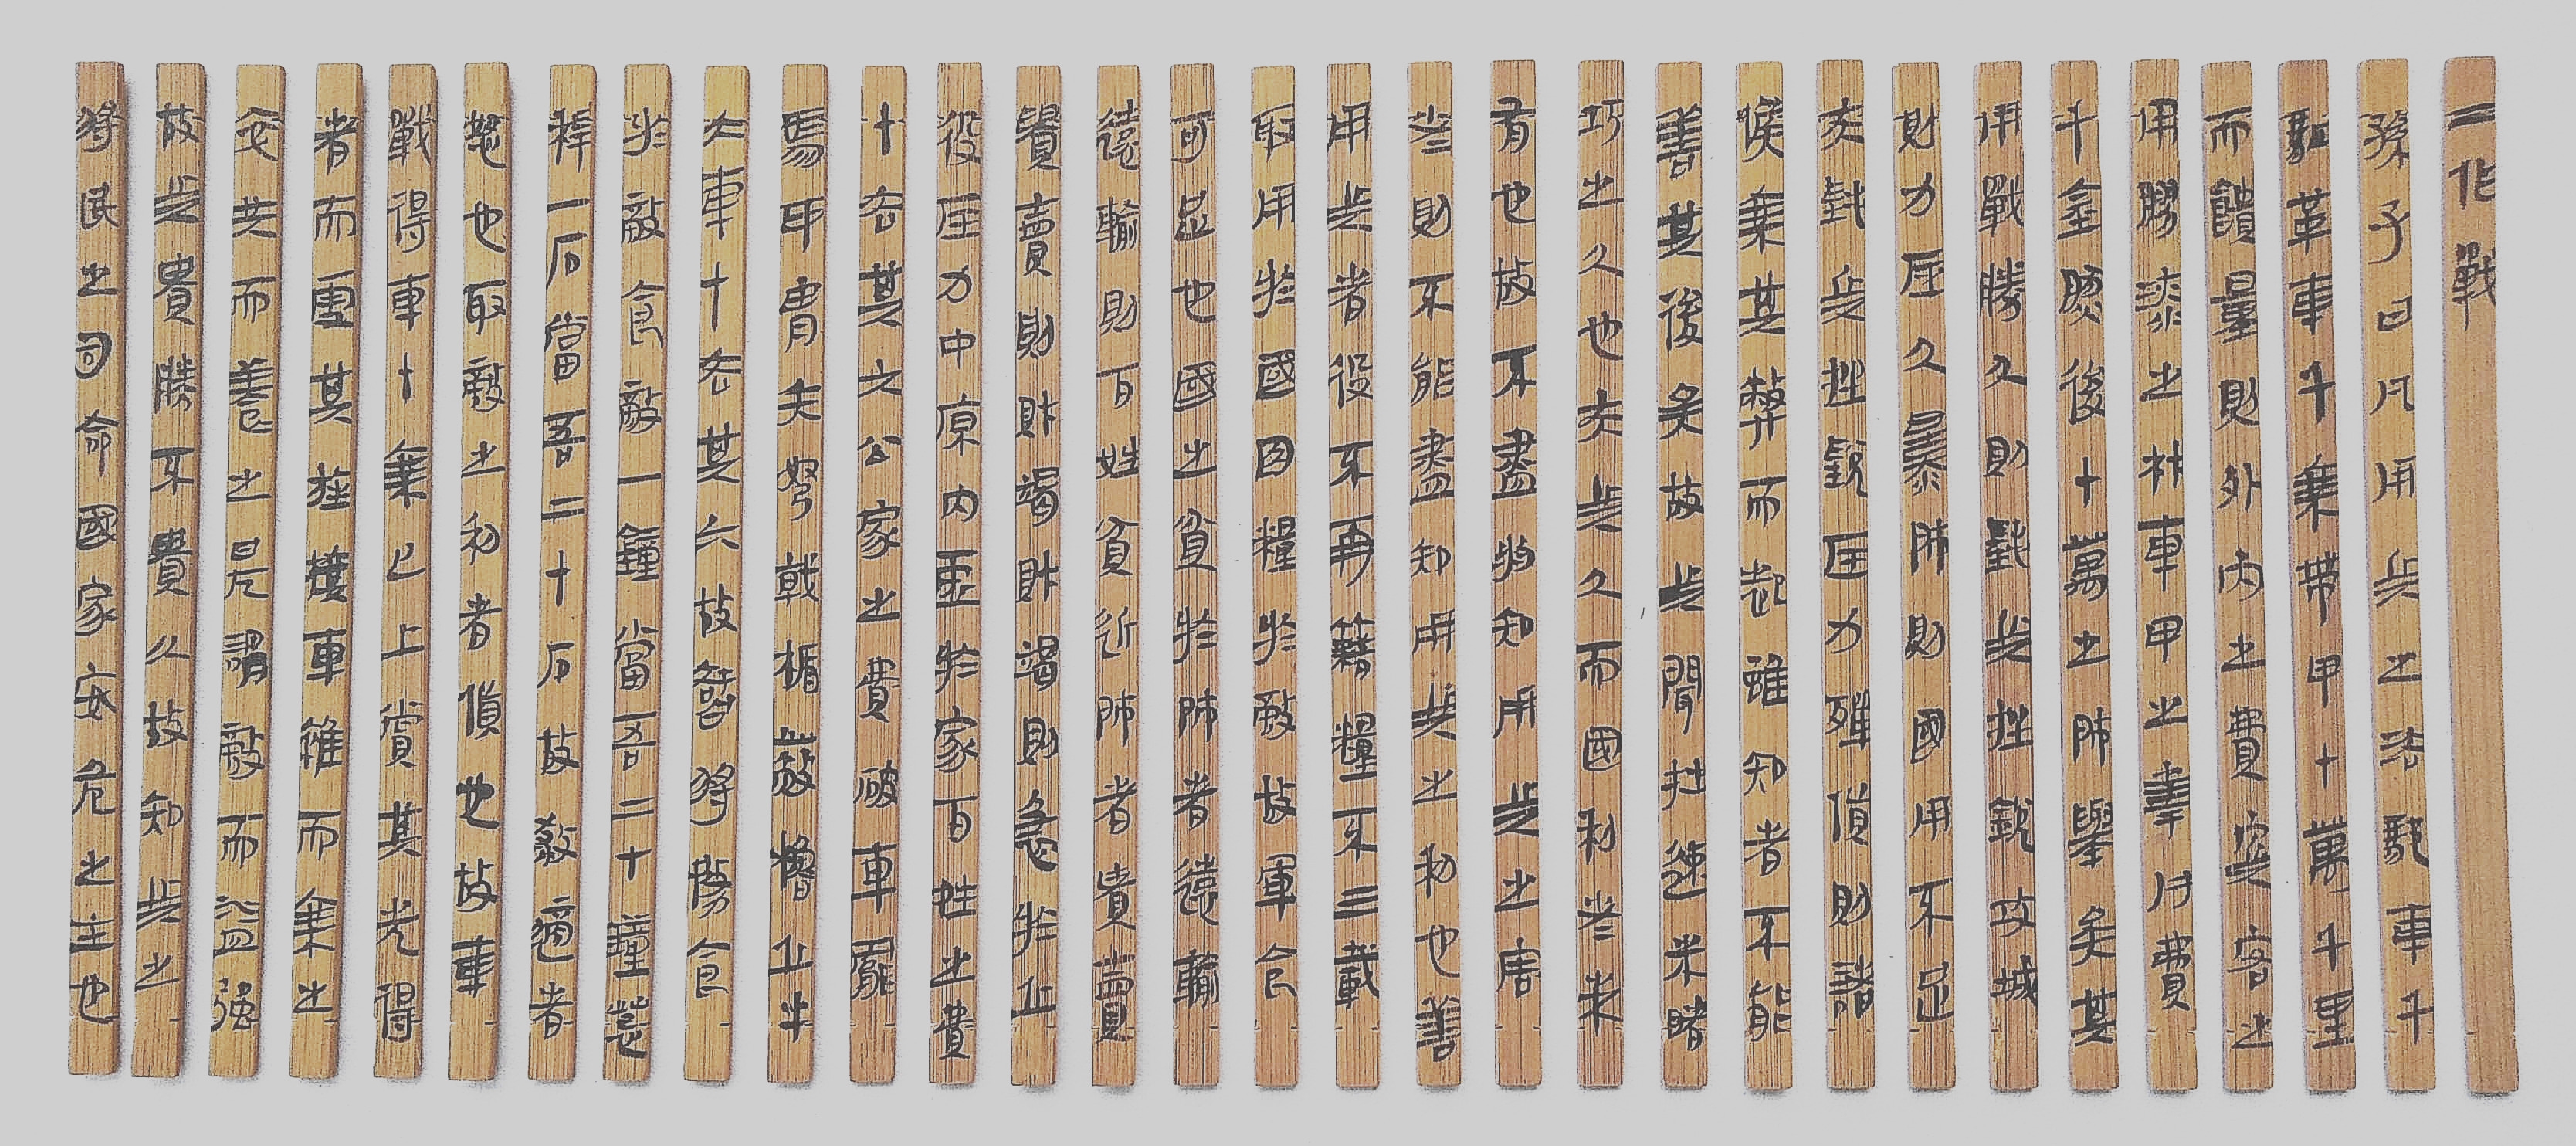 二作戰
孫子曰凡用兵之法馳車千
駟革車千乘帶甲十萬千里
而饋量則外內之費賓客之
用膠漆之材車甲之奉日費
千金然後十萬之師舉矣其
用戰勝久則鈍兵挫銳攻城
則力屈久暴師則國用不足
夫鈍兵挫銳屈力殫貨則諸
侯乘其弊而起雖知者不能
善其後矣故兵聞拙速未睹
巧之久也夫兵久而國利者未
有也故不盡於知用兵之害
者則不能盡知用兵之利也善
用兵者役不再籍糧不三載
取用於國因糧於敵故軍食
可足也國之貧於師者遠輸
遠輸則百姓貧近師者貴賣
貴賣則財竭財竭則急於丘
役屈力中原內虛於家百姓之費
十去其六公家之費破車罷
馬甲冑矢弩戟楯蔽櫓丘牛
大車十去其六故智將務食
於敵食敵一鍾當吾二十鍾
稈一石當吾二十石故殺適者
怒也取敵之利者貨也故車
戰得車十乘已上賞其先得
者而更其旌接車雜而乘之
卒共而養之是謂敵而益強
故兵貴勝不貴久故知兵之
將民之司命國家安危之主也